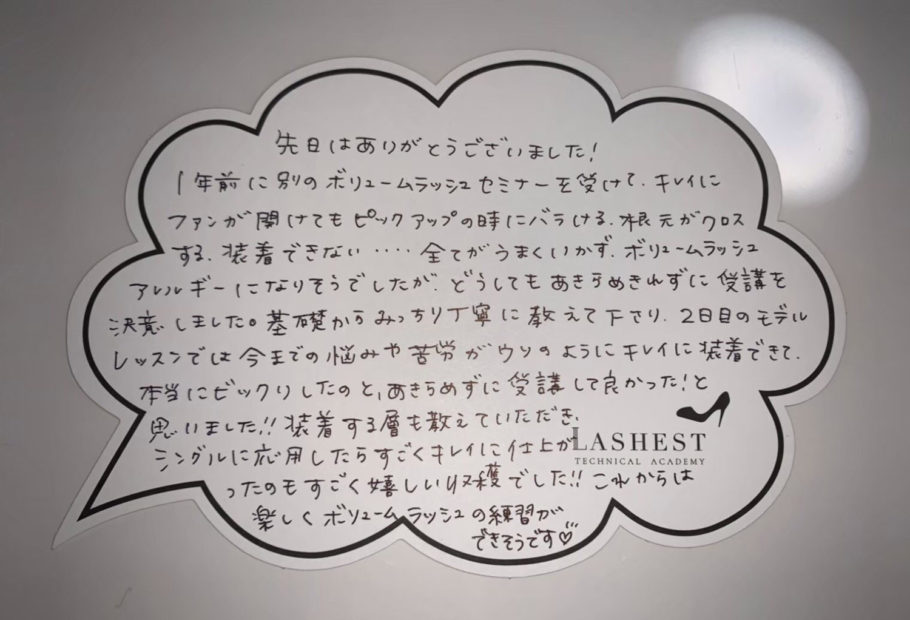 先日はありがとうございました!
1年前に別のボリュームラッシュセミナーを受けて、キレイに
ファンが開けてもピックアップの時にバラける、根元がクロス
する、装着できない‥‥全てがうまくいかず、ボリュームラッシュ
アレルギーになりそうでしたが、どうしてもあきらめきれずに受講を
決意しました。基礎からみっちり丁寧に教えて下さり、2日目のモデル
レッスンでは今までの悩みや苦労がウソのようにキレイに装着できて、
本当にビックリしたのと、あきらめずに受講して良かった!と
思いました!!装着する層も教えていただき、
シングルに応用したらすごくキレイに仕上が
ったのもすごく嬉しい収穫でした!!これからは
楽しくボリュームラッシュの練習が
できそうです♡
LASHEST
TECHNICAL ACADEMY